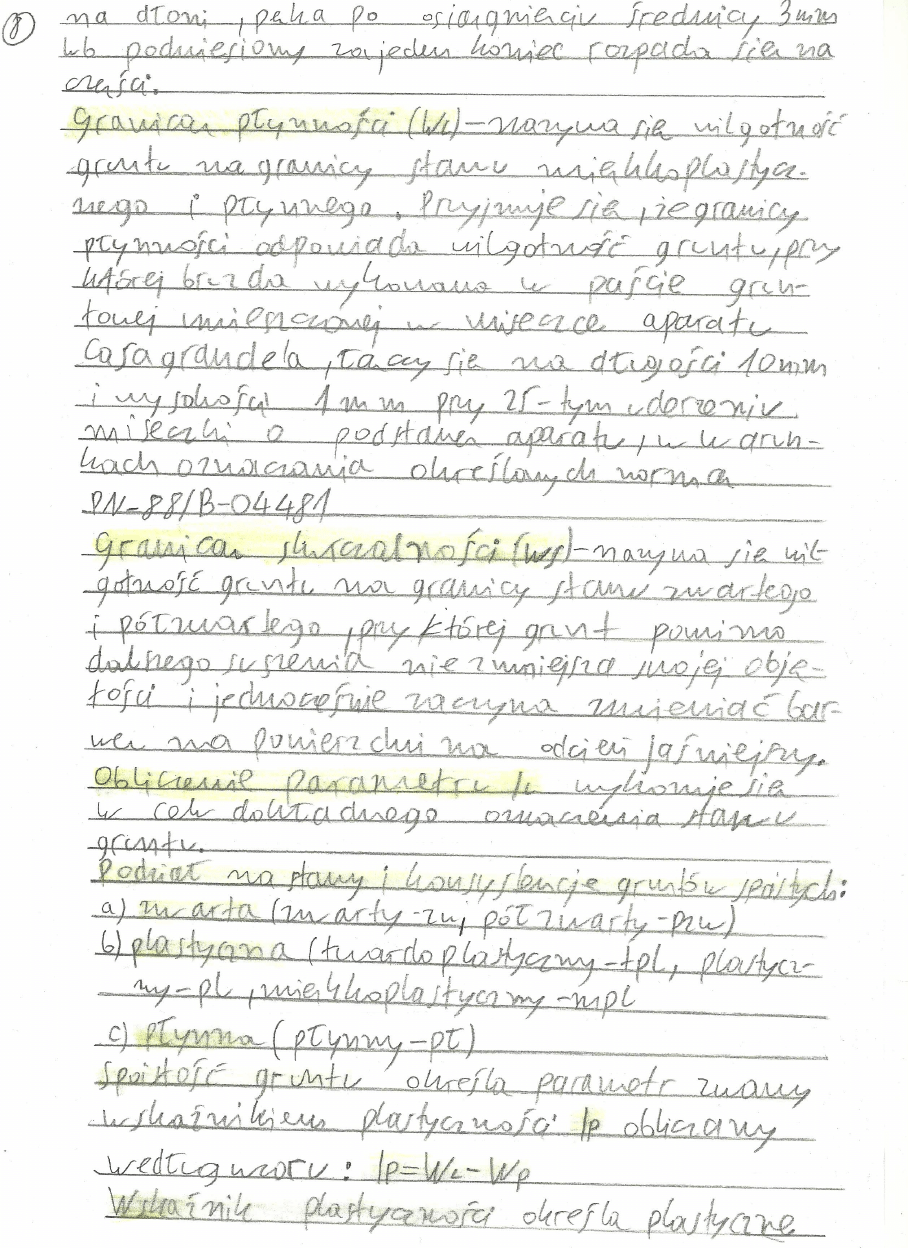 8
na dłoni, pęka po osiągnięciu średnicy 3mm
lub podniesiony za jeden koniec rozpada się na
części.
Granica płynności (WL) - nazywa się wilgotność
gruntu na granicy stanu miękkoplastycz-
nego i płynnego. Przyjmuje się, że granicy
płynności odpowiada wilgotność gruntu, przy
której bruzda wykonana w paście grun-
towej umieszczonej w miseczce aparatu
Casagrande'a, łączy się na długości 10mm
i wysokości 1mm przy 25-tym uderzeniu
miseczki o podstawę aparatu, w warun-
kach oznaczania określonych normą
PN-88/B-04481
Granica skurczalności (Ws) - nazywa się wil-
gotność gruntu na granicy stanu zwartego
i półzwartego, przy której grunt pomimo
dalszego suszenia nie zmniejsza swojej obję-
tości i jednocześnie zaczyna zmieniać bar-
wę na powierzchni na odcień jaśniejszy.
Obliczenie parametru IL wykonuje się
w celu dokładnego oznaczenia stanu
gruntu.
Podział na stany i konsystencje gruntów spoistych:
a) zwarta (zwarty - zw, półzwarty - pzw)
b) plastyczna (twardoplastyczny - tpl, plastycz-
ny - pl, miękkoplastyczny - mpl
c) płynna (płynny - pł)
Spoistość gruntu określa parametr zwany
wskaźnikiem plastyczności Ip obliczany
według wzoru: Ip = WL - Wp
Wskaźnik plastyczności określa plastyczne